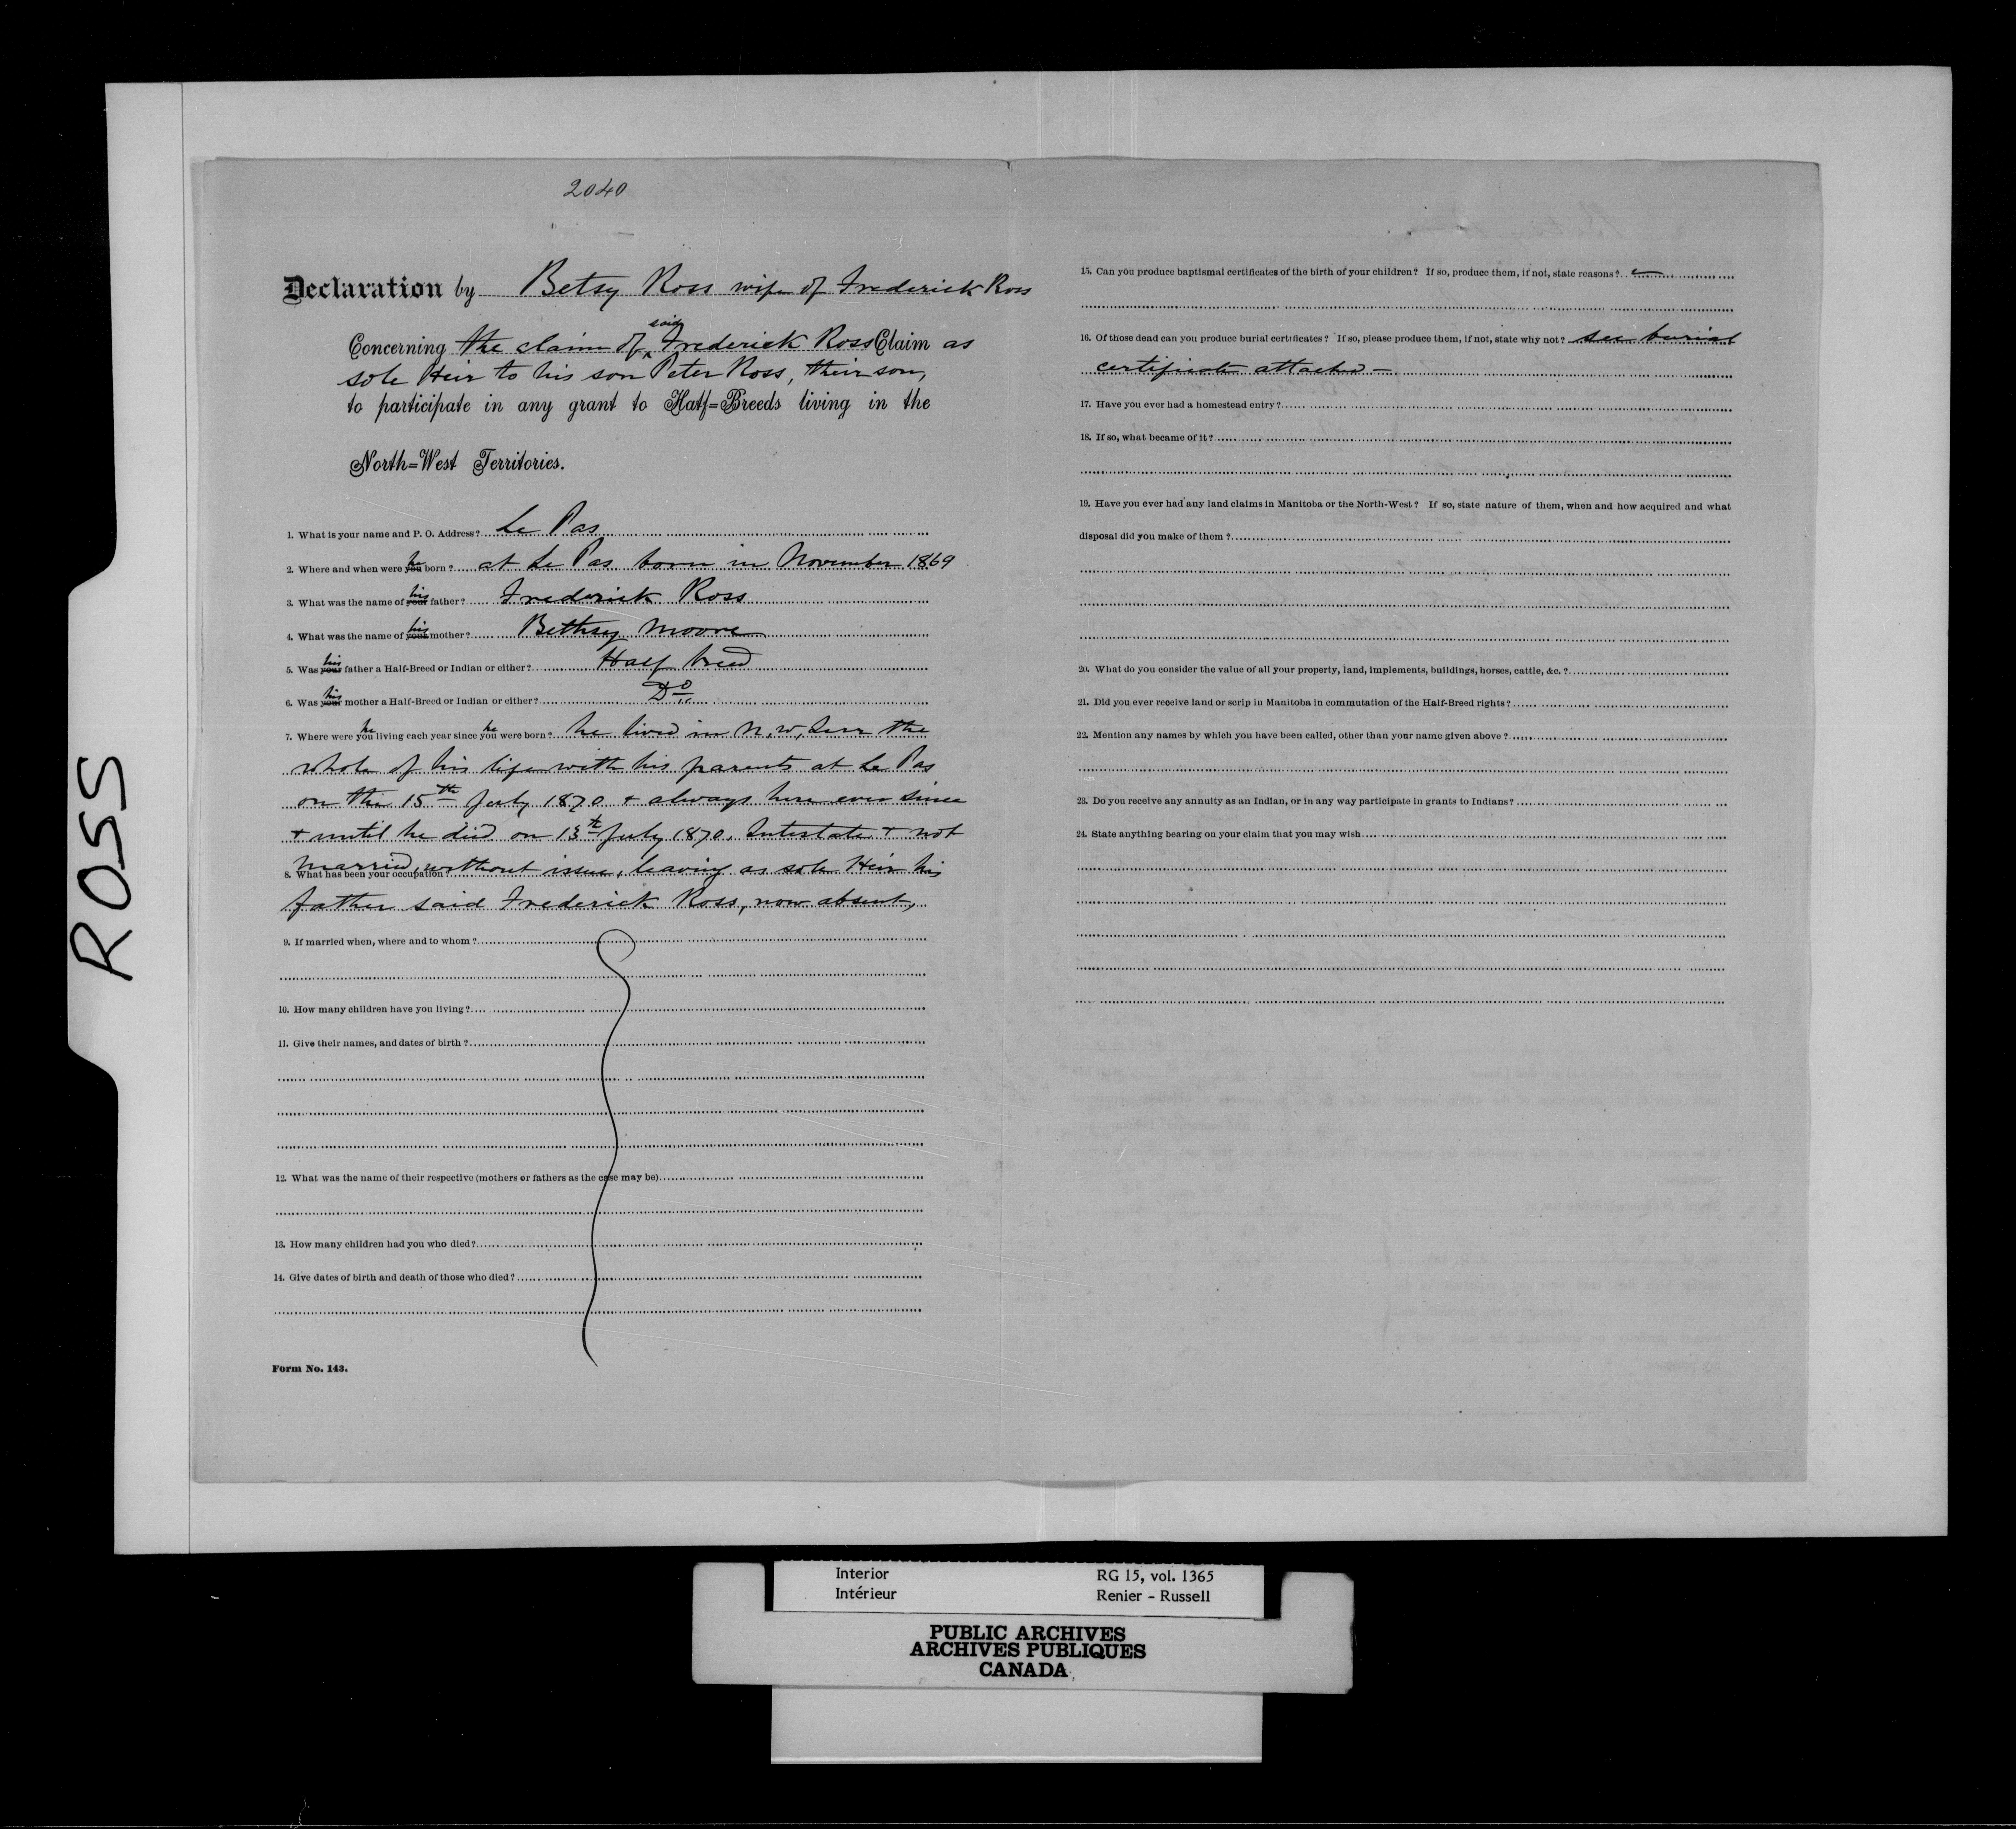 2040
Declaration by Betsy Ross wife of Frederick Ross
said
Concerning the claim of Frederick Ross Claim as
sole Heir to his son Peter Ross, their son,
to participate in any grant to Half=Breeds living in the
North=West Territories.
1. What is your name and P. O. Address? Le Pas
2. Where and when were you he born? at Le Pas born in November 1869
3. What was the name of your his father? Frederick Ross
4. What was the name of your his mother? Bethsy Moore
5. Was your his father a Half-Breed or Indian or either? Half breed
6. Was your his mother a Half-Breed or Indian or either? Do
7. Where were you he living each year since you he were born? he lived in N. W, Terr the
whole of his life with his parents at Le Pas
on the 15th July 1870 + always here ever since
+ until he died on 13th July 1870. Intestate + not
married, without issue, leaving as sole Heir his
8. What has been your occupation?
father said Frederick Ross, now absent,
9. If married when, where and to whom?
10. How many children have you living?
11. Give their names, and dates of birth?
12. What was the name of their respective (mothers or fathers as the case may be)
13. How many children had you who died?
14. Give dates of birth and death of those who died?
Form No. 143.
15. Can you produce baptismal certificates of the birth of your children? If so, produce them, if not, state reasons?
16. Of those dead can you produce burial certificates? If so, please produce them, if not, state why not? see burial
certificate attached -
17. Have you ever had a homestead entry?
18. If so, what became of it?
19. Have you ever had any land claims in Manitoba or the North-West? If so, state nature of them, when and how acquired and what
disposal did you make of them?
20. What do you consider the value of all your property, land, implements, buildings, horses, cattle, &c.?
21. Did you ever receive land or scrip in Manitoba in commutation of the Half-Breed rights?
22. Mention any names by which you have been called, other than your name given above?
23. Do you receive any annuity as an Indian, or in any way participate in grants to Indians?
24. State anything bearing on your claim that you may wish
ROSS
Interior RG 15, vol. 1365
Intérieur Renier - Russell
PUBLIC ARCHIVES
ARCHIVES PUBLIQUES
CANADA